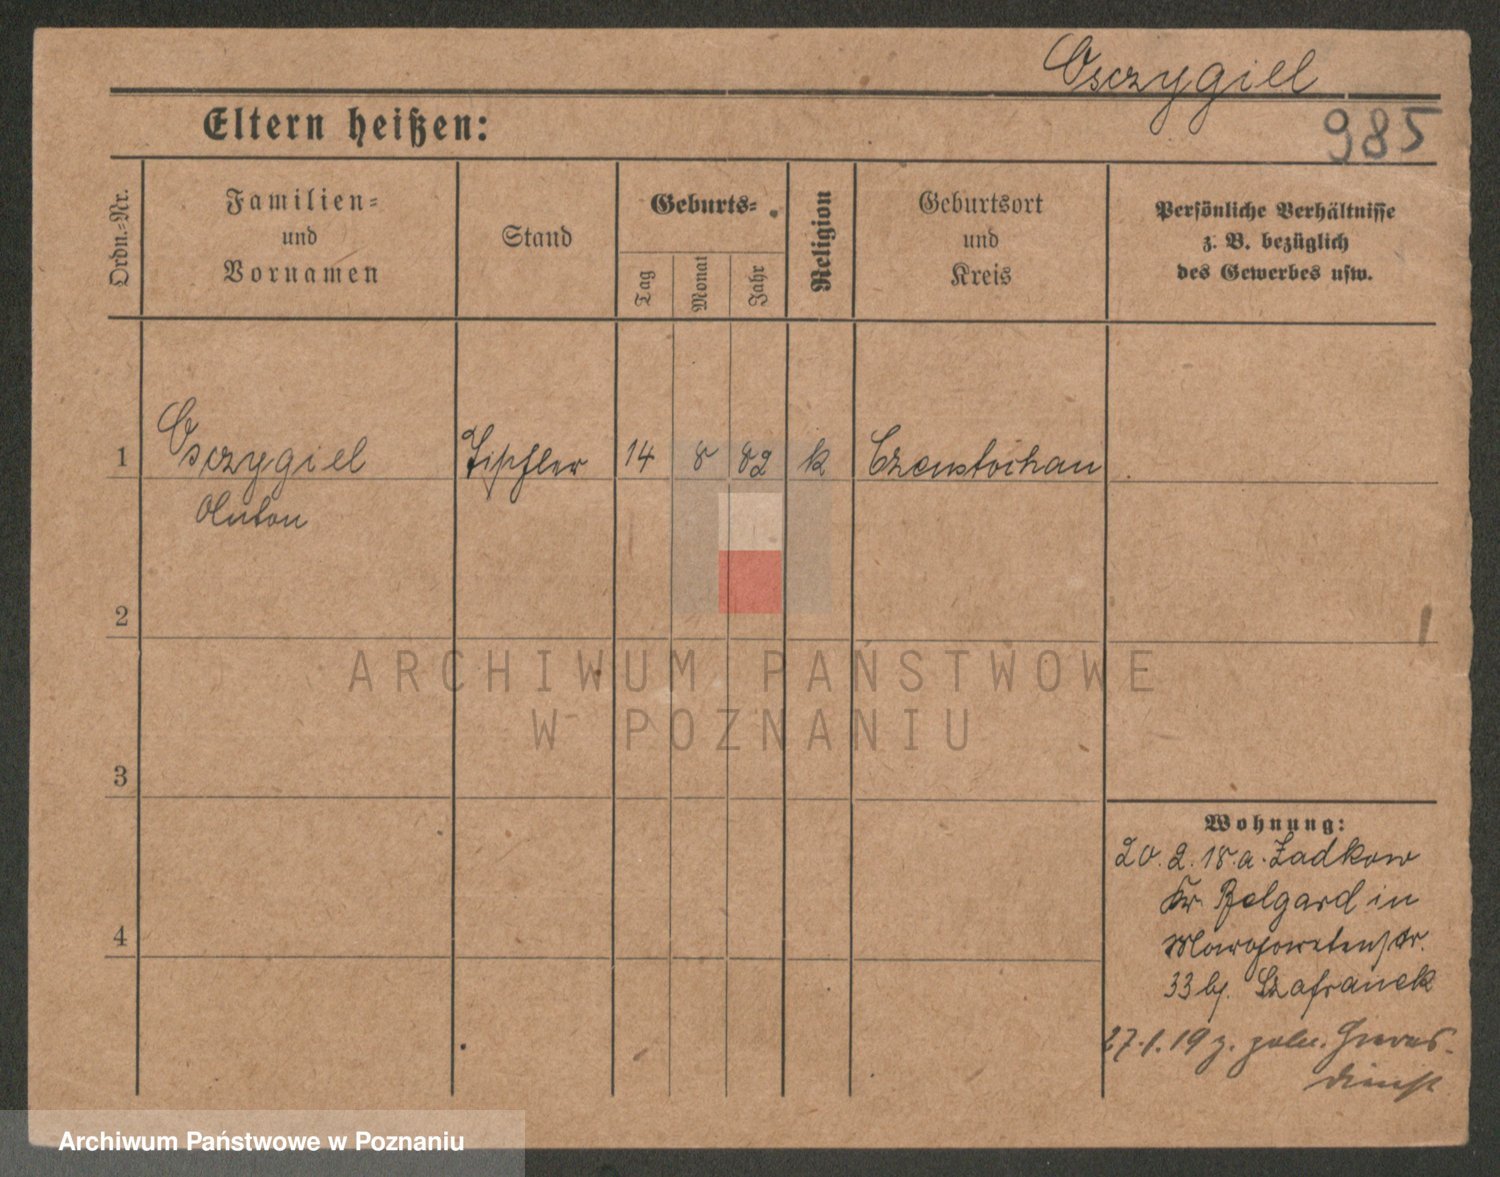 Osczygiel
985
Eltern heißen:
Ordn.-Nr.
Familien-
und
Vornamen
Stand
Geburts-
Tag
Monat
Jahr
Religion
Geburtsort
und
Kreis
Persönliche Verhältnisse
z. B. bezüglich
des Gewerbes usw.
1 Osczygiel Tischler 14 8 82 k Czenstochau
Anton
2
3
4
Wohnung:
20.2.18. a. Zadkow
Kr. Belgard in
Margaretenstr.
33 bj. Szafranek
27.1.19 z. poln. Heeres-
dienst
ARCHIWUM PAŃSTWOWE
W POZNANIU
Archiwum Państwowe w Poznaniu